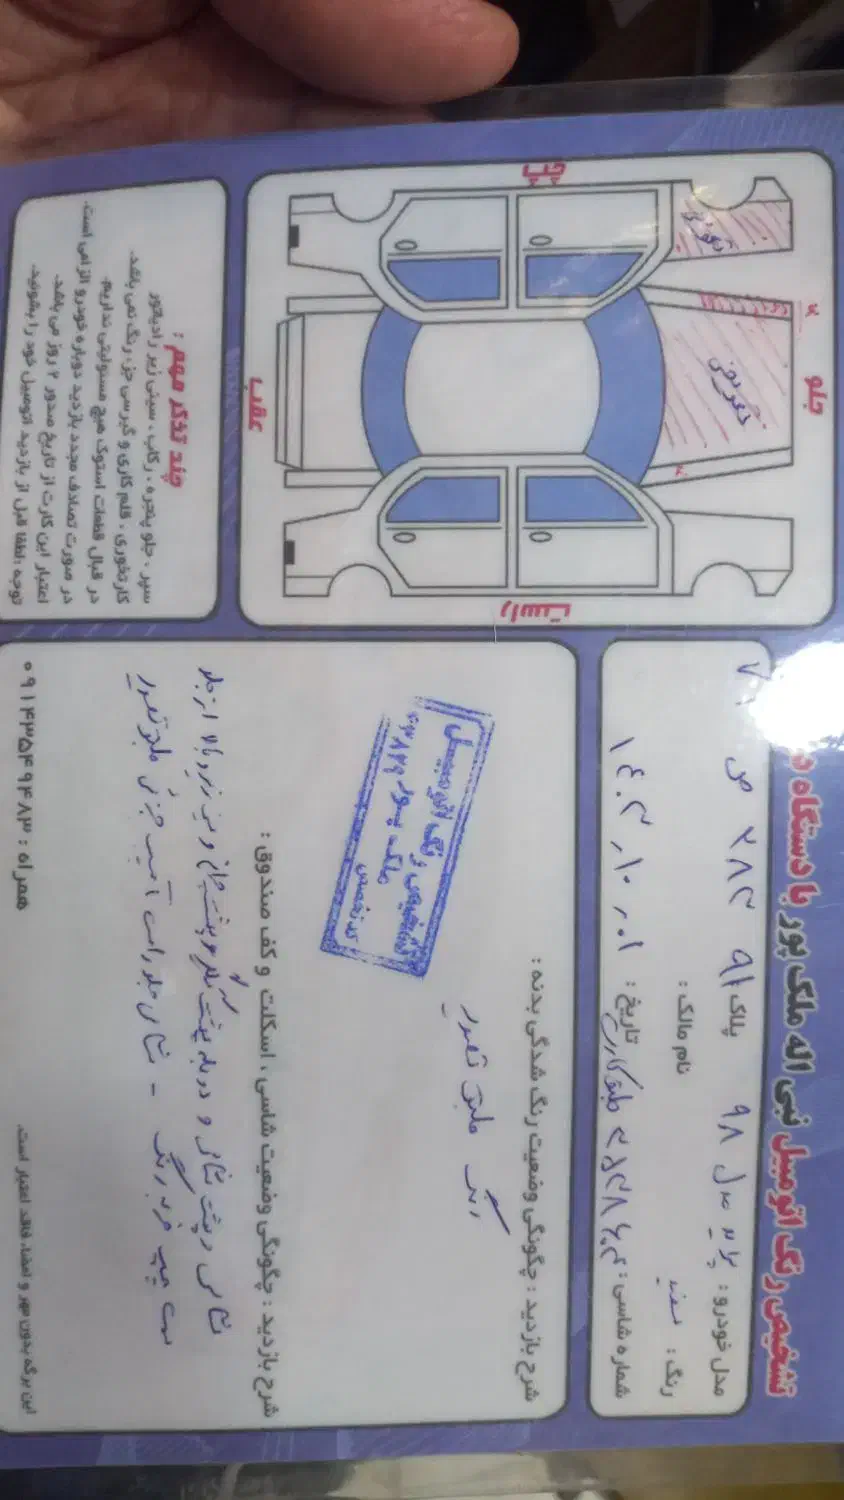 تشخیص رنگ اتومبیل نبی اله ملک پور با دستگاه
مدل خودرو : پراید مدل ۹۸ پلاک ۹۱ ۲۸۳ ص
رنگ : سفید نام مالک :
شماره شاسی : تاریخ : ۱۴۰۳,۱۰,۰۱
جلو
چپ
تعویض
تعویض
راست
عقب
شرح بازدید : چگونگی وضعیت رنگ شدگی بدنه :
رنگ طبق تصویر
تشخیص رنگ اتومبیل
ملک پور
کد تخصص
شرح بازدید : چگونگی وضعیت شاسی ، اسکلت و کف صندوق :
سمت چپ ضربه رنگ - شاسی جلو راست آسیب جزئی طبق تصویر
همراه : ۰۹۱۴۳۵۴۹۴۸۳
این برگه بدون مهر و امضاء فاقد اعتبار است.
چند تذکر مهم :
سپر ، جلو پنجره ، رکاب ، سینی زیر رادیاتور
کارتخوری ، قلم کاری و گیرسی جزء رنگ نمی باشد.
در قبال قطعات استوک هیچ مسئولیتی نداریم.
در صورت تصادف مجدد بازدید دوباره خودرو الزامی است.
اعتبار این کارت از تاریخ صدور ۲ روز می باشد.
توجه :لطفا قبل از بازدید اتومبیل خود را بشوئید.